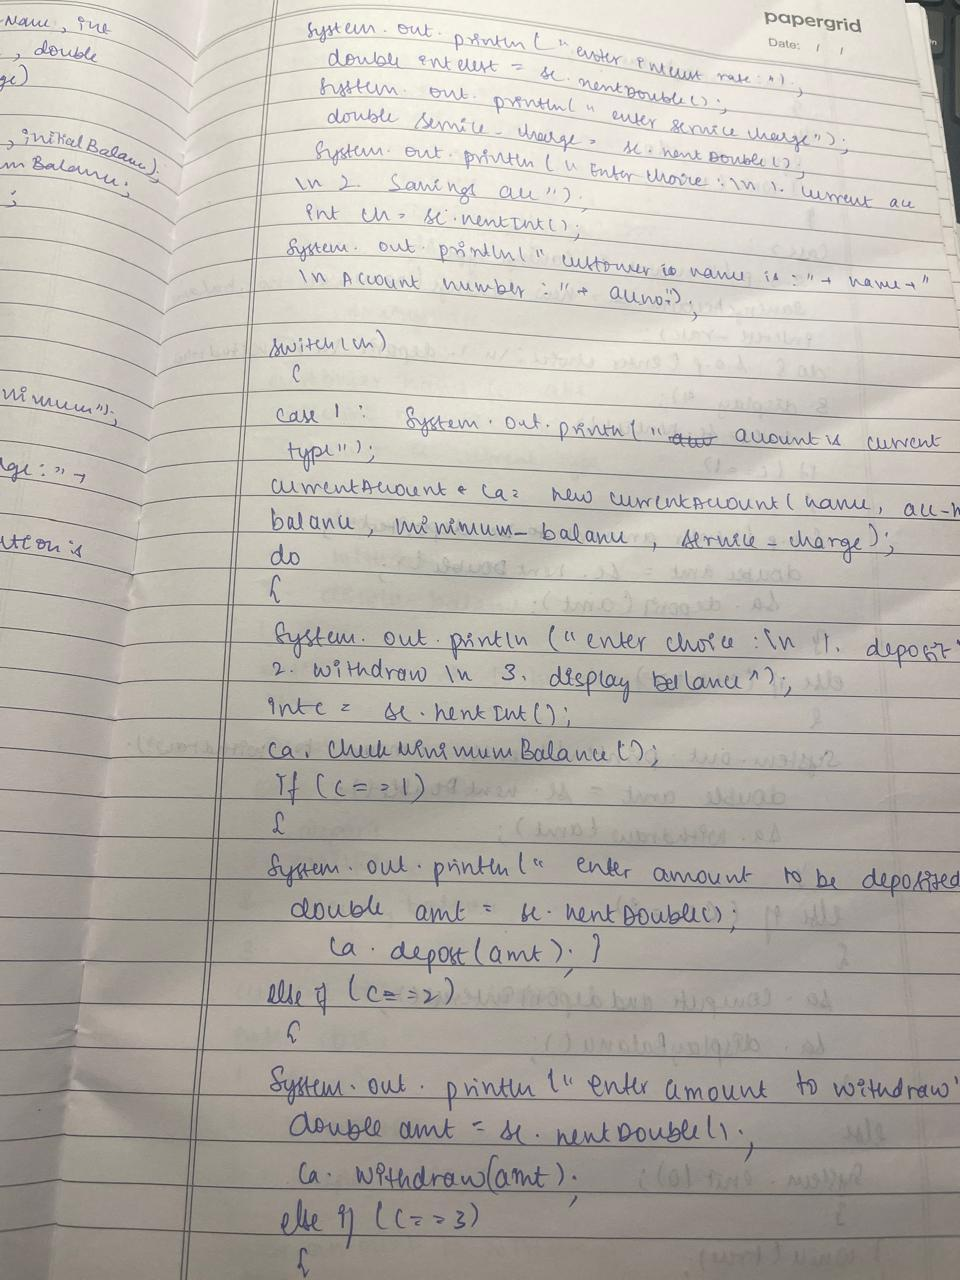 Name, int
, double
ge)
, initialBalance);
m Balance;
;
nimum");
rge:" +
ution is
papergrid
Date: / /
System. out. println (" enter interest rate: ");
double interest = sc. nextDouble();
System. out. println(" enter service charge");
double service_charge = sc. nextDouble();
System. out. println (" Enter choice : \n 1. current acc
\n 2. Savings acc ");
int ch = sc. nextInt();
System. out. println(" customer is name is : " + name + "
\n Account number : " + accno);
switch(ch)
{
case 1 : System. out. println(" account is current
type");
currentAccount ca = new currentAccount (name, acc-n
balance, minimum_balance, service_charge);
do
{
System. out. println (" enter choice : \n 1. deposit
2. withdraw \n 3. display balance ");
int c = sc. nextInt();
ca. checkMinimumBalance();
If (c == 1)
{
System. out. println (" enter amount to be deposited
double amt = sc. nextDouble();
ca. depost(amt); }
else if (c == 2)
{
System. out. println (" enter amount to withdraw"
double amt = sc. nextDouble();
ca. withdraw(amt);
else if (c == 3)
{